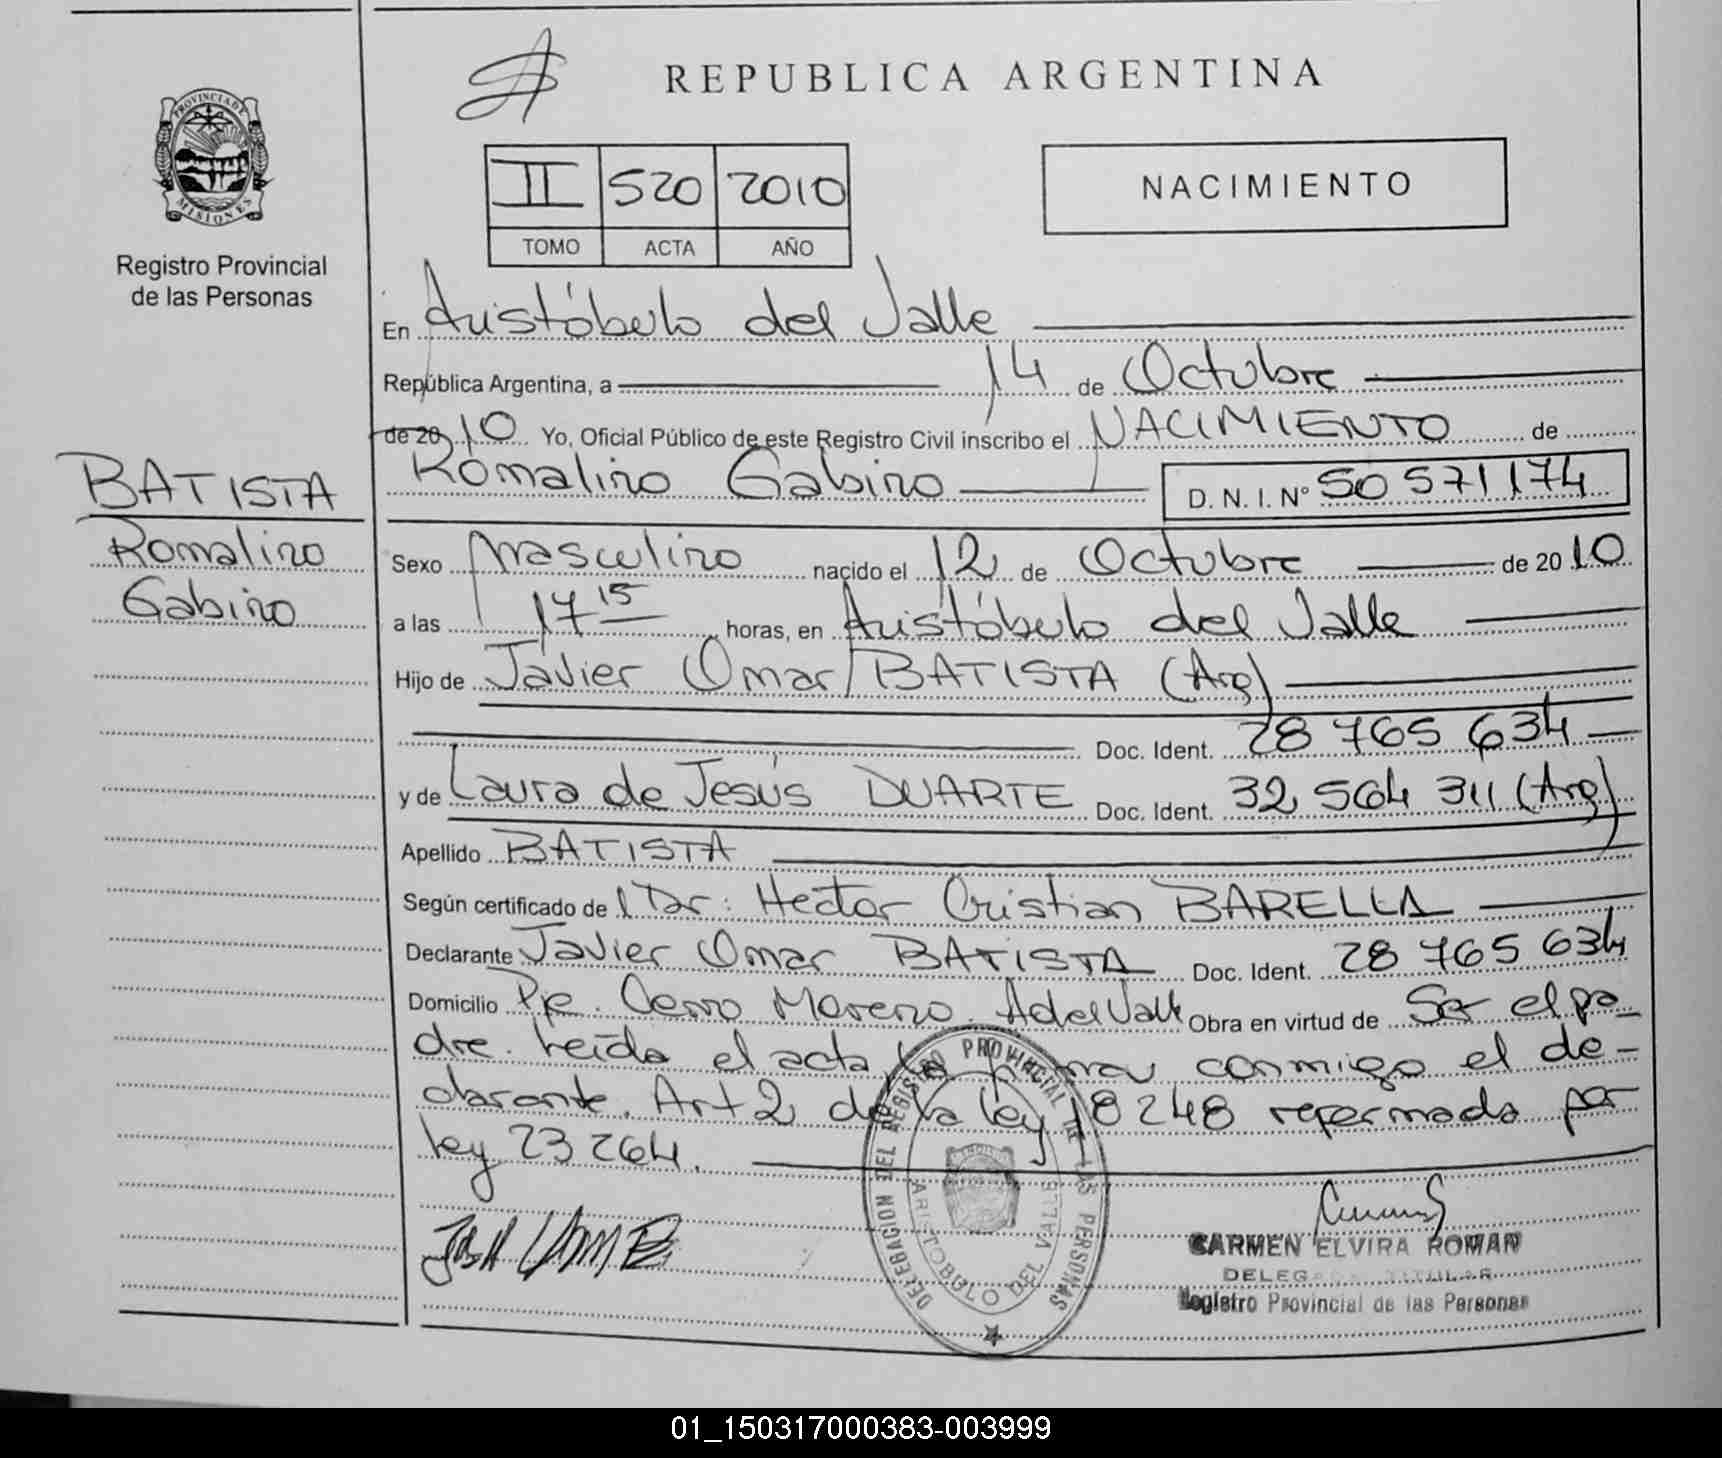 REPUBLICA ARGENTINA
PROVINCIA DE
MISIONES
Registro Provincial
de las Personas
II 520 2010
TOMO ACTA AÑO
NACIMIENTO
En Aristóbulo del Valle
República Argentina, a 14 de Octubre
de 2010 Yo, Oficial Público de este Registro Civil inscribo el NACIMIENTO de
Romalino Gabino D. N. I. N° 50 571 174
BATISTA
Romalino
Gabino
Sexo Masculino nacido el 12 de Octubre de 2010
a las 17 15 horas, en Aristóbulo del Valle
Hijo de Javier Omar BATISTA (Arg)
Doc. Ident. 28 765 634
y de Laura de Jesús DUARTE Doc. Ident. 32 564 311 (Arg)
Apellido BATISTA
Según certificado del Dr: Hector Cristian BARELLA
Declarante Javier Omar BATISTA Doc. Ident. 28 765 634
Domicilio Pje. Cerro Moreno. A del Valle Obra en virtud de Ser el pa-
dre. Leída el acta conmigo el de-
clarante. Art 2 de la ley 18248 reformada por
ley 23264.
DELEGACION DEL REGISTRO PROVINCIAL DE LAS PERSONAS
ARISTOBULO DEL VALLE
CARMEN ELVIRA ROMAN
DELEGADA TITULAR
Registro Provincial de las Personas
01_150317000383-003999